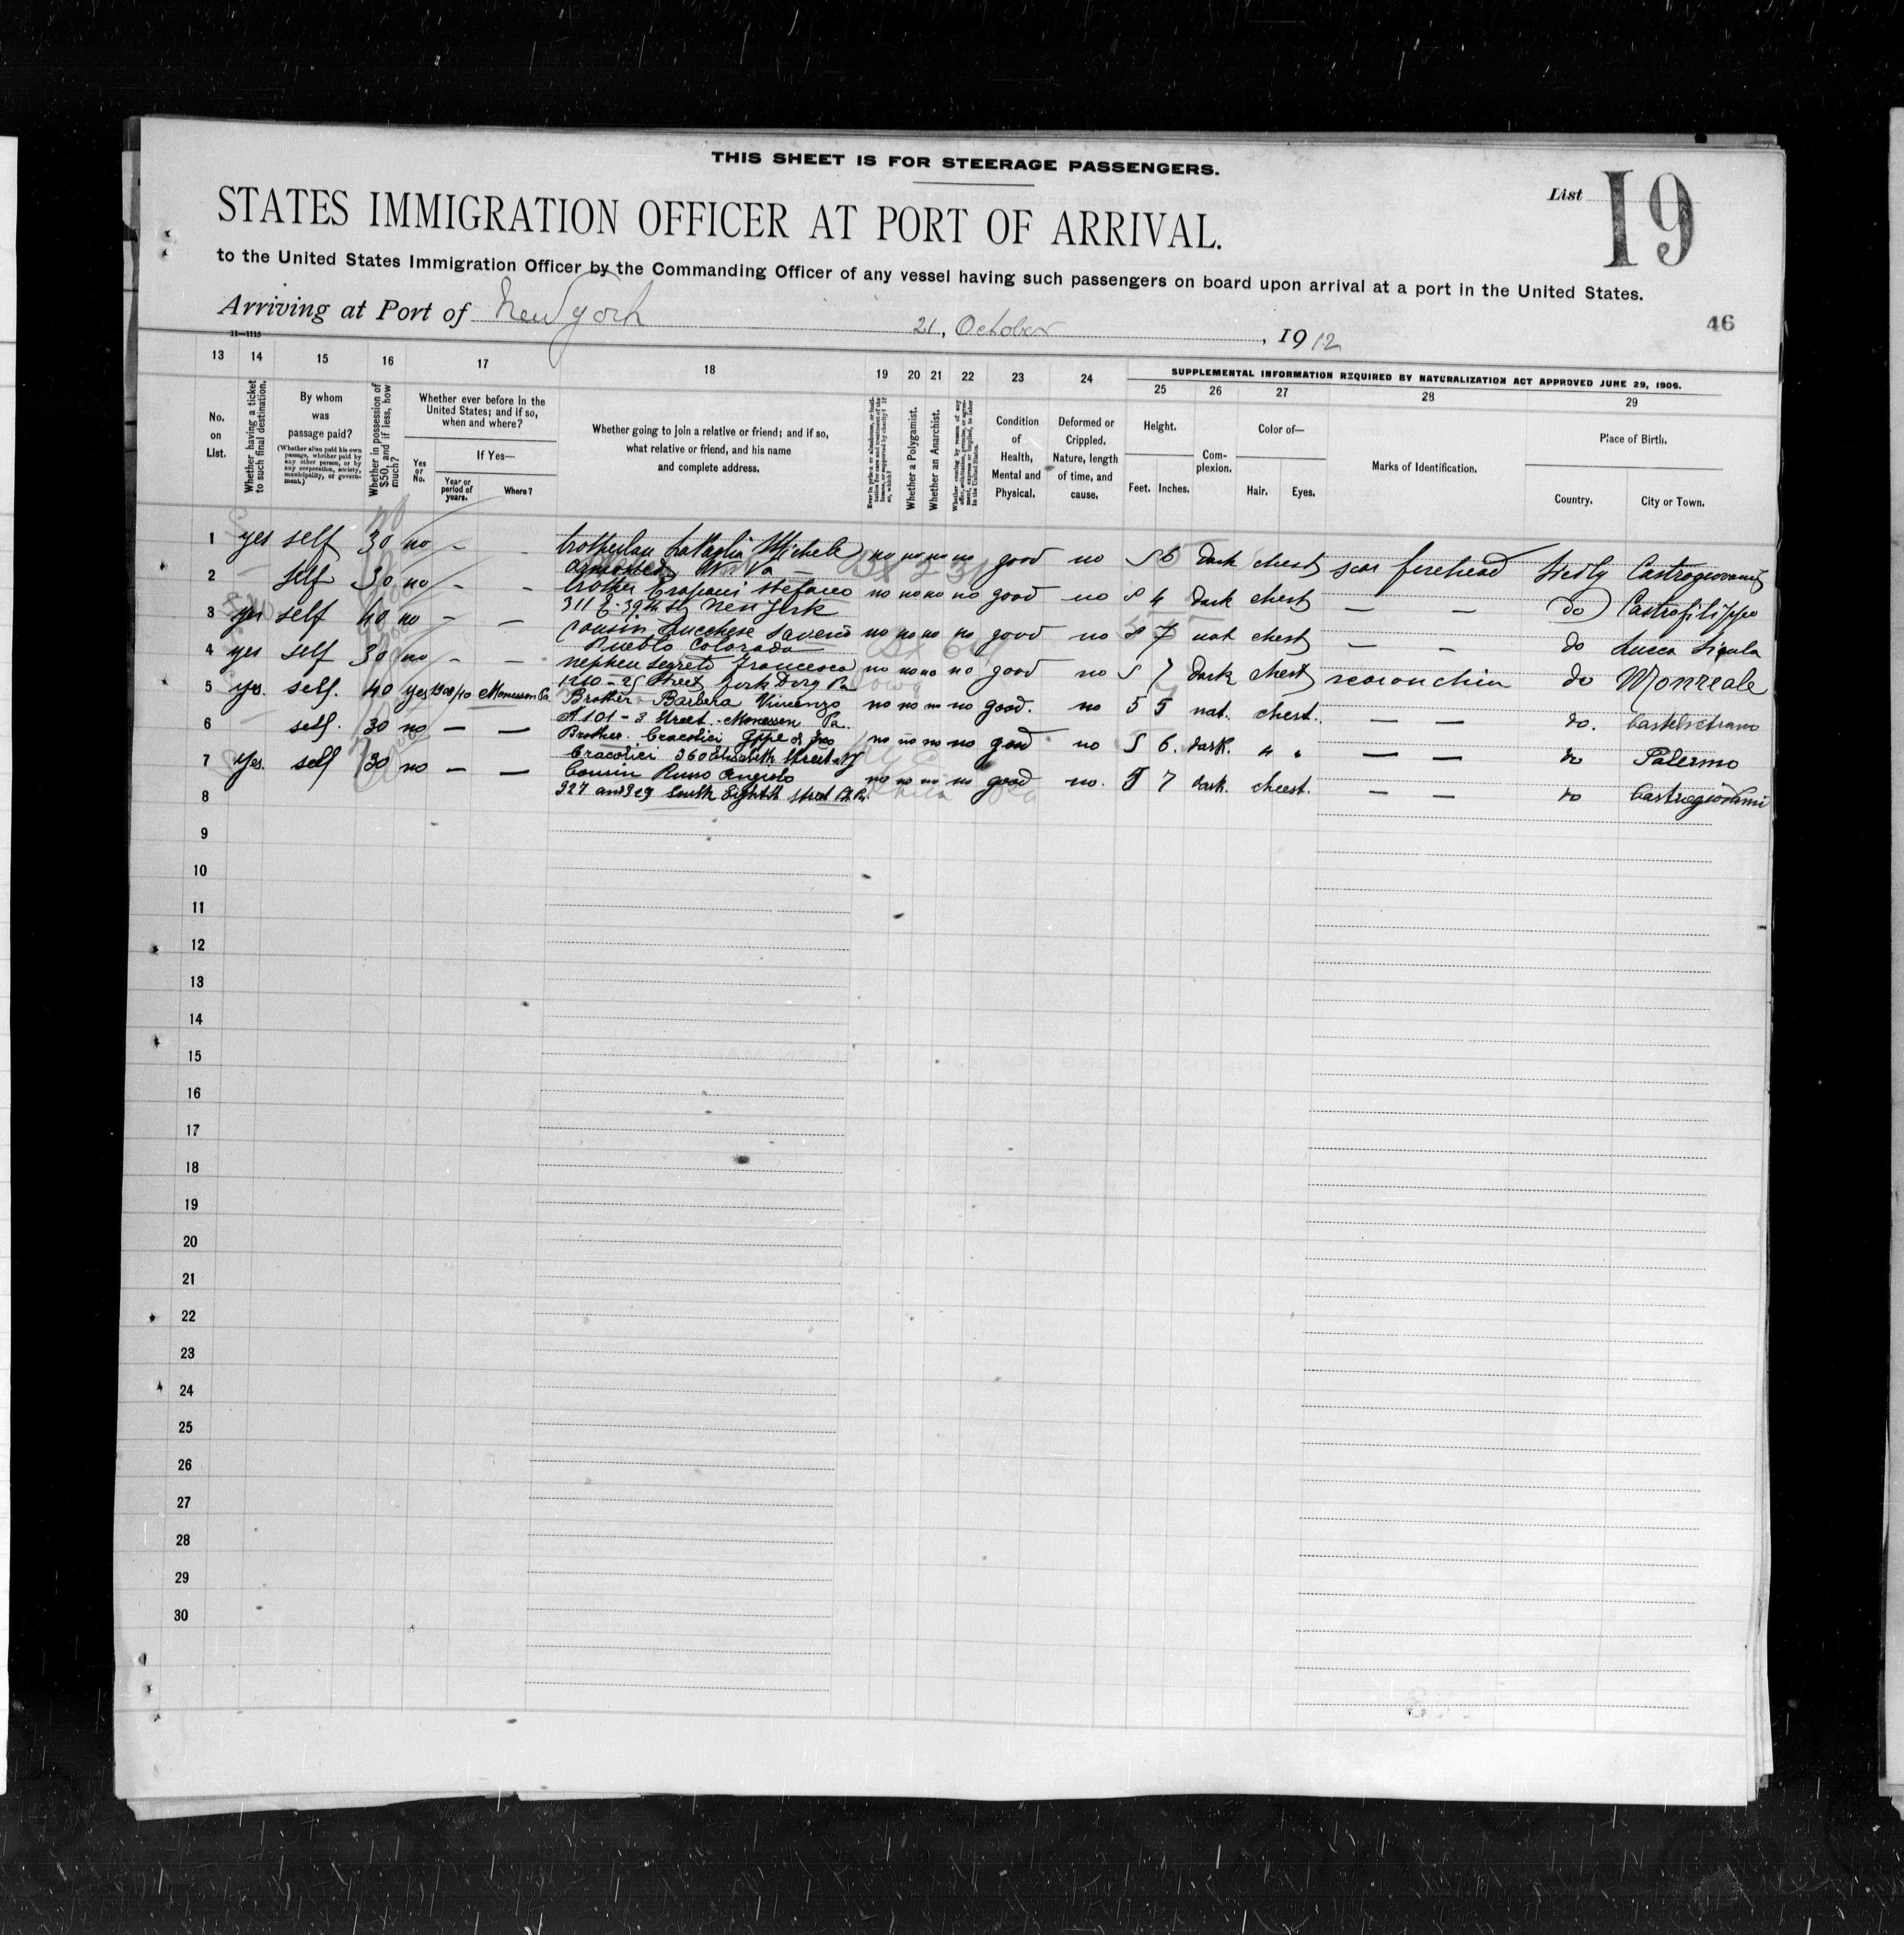 THIS SHEET IS FOR STEERAGE PASSENGERS.
List 19
STATES IMMIGRATION OFFICER AT PORT OF ARRIVAL.
to the United States Immigration Officer by the Commanding Officer of any vessel having such passengers on board upon arrival at a port in the United States.
Arriving at Port of New York 21, October, 1912
46
11—1115
13 14 15 16 17 18 19 20 21 22 23 24
SUPPLEMENTAL INFORMATION REQUIRED BY NATURALIZATION ACT APPROVED JUNE 29, 1906.
25 26 27 28 29
No. on List.
Whether having a ticket to such final destination.
By whom was passage paid?
(Whether alien paid his own passage, whether paid by any other person, or by any corporation, society, municipality, or government.)
Whether in possession of $50, and if less, how much?
Whether ever before in the United States; and if so, when and where?
Yes or No.
If Yes—
Year or period of years.
Where?
Whether going to join a relative or friend; and if so, what relative or friend, and his name and complete address.
Ever in prison or almshouse, or institution for care and treatment of the insane, or supported by charity? If so, which?
Whether a Polygamist.
Whether an Anarchist.
Whether coming by reason of any offer, solicitation, promise, or agreement, express or implied, to labor in the United States.
Condition of Health, Mental and Physical.
Deformed or Crippled. Nature, length of time, and cause.
Height.
Feet. Inches.
Complexion.
Color of—
Hair. Eyes.
Marks of Identification.
Place of Birth.
Country. City or Town.
1 yes self 30 no - - Michele no no no no good no 5 6 dark chest scar forehead Sicily Castrogiovanni
W. Va
2 self 30 no - - brother Trapani Stefano no no no no good no 5 4 dark chest — — do Castrofilippo
311 E. 39th St New York
3 yes self 40 no - — cousin Lucchese Saverio no no no no good no 5 7 nat chest — - do Lucca Sicula
Pueblo Colorado
4 yes self 30 no - — nephew Segreto Francesco no no no no good no 5 7 dark chest scar on chin do Monreale
1210 - 25 Street
5 yes. self. 40 yes 1908/10 Monessen Pa Brother Barbera Vincenzo no no no no good. no 5 5 nat. chest. — — do. Castelvetrano
101 - 3 Street Monessen Pa.
6 self. 30 no — — Brother Cracolici Gppe no no no no good no 5 6. dark. " " — — do Palermo
Cracolici 260 Elisabeth Street NY
7 Yes. self 30 no — — Cousin Russo Angelo no no no no good no. 5 7 dark. chest. — — do Castrogiovanni
927 and 929 South Eighth Street
8
9
10
11
12
13
14
15
16
17
18
19
20
21
22
23
24
25
26
27
28
29
30